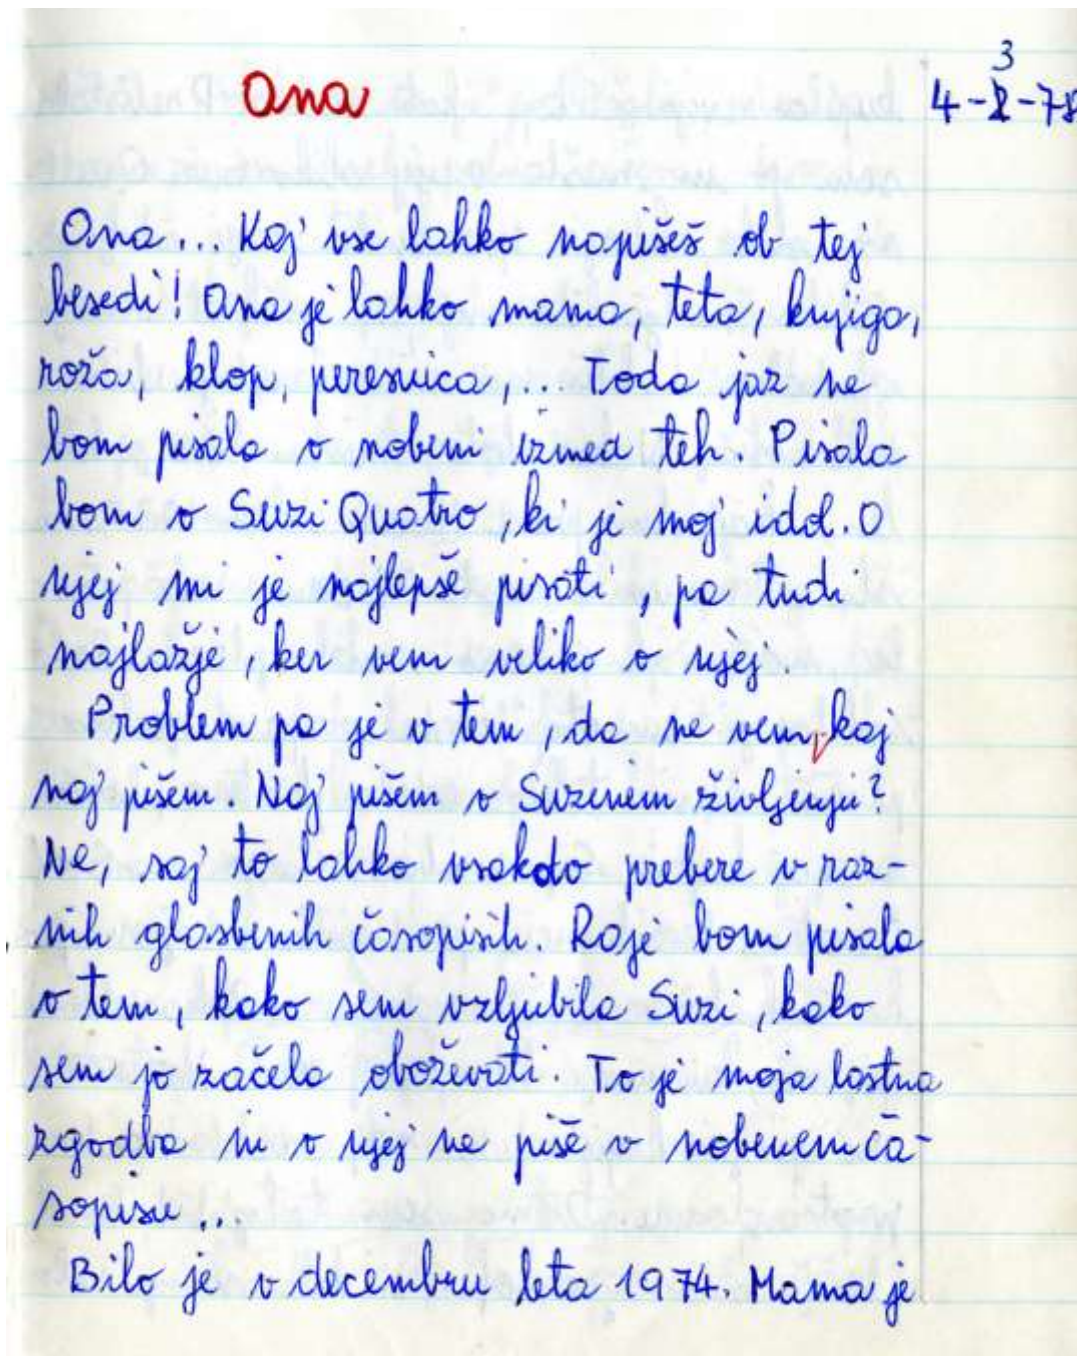 Ona
4-3-78
Ona... Kaj vse lahko napišeš ob tej
besedi! Ona je lahko mama, teta, knjiga,
roža, klop, peresnica,... Toda jaz ne
bom pisala o nobeni izmed teh. Pisala
bom o Suzi Quatro, ki je moj idol. O
njej mi je najlepše pisati, pa tudi
najlažje, ker vem veliko o njej.
Problem pa je v tem, da ne vem, kaj
naj pišem. Naj pišem o Suzinem življenju?
Ne, saj to lahko vsakdo prebere v raz-
nih glasbenih časopisih. Raje bom pisala
o tem, kako sem vzljubila Suzi, kako
sem jo začela oboževati. To je moja lastna
zgodba in o njej ne piše v nobenem ča-
sopisu...
Bilo je v decembru leta 1974. Mama je